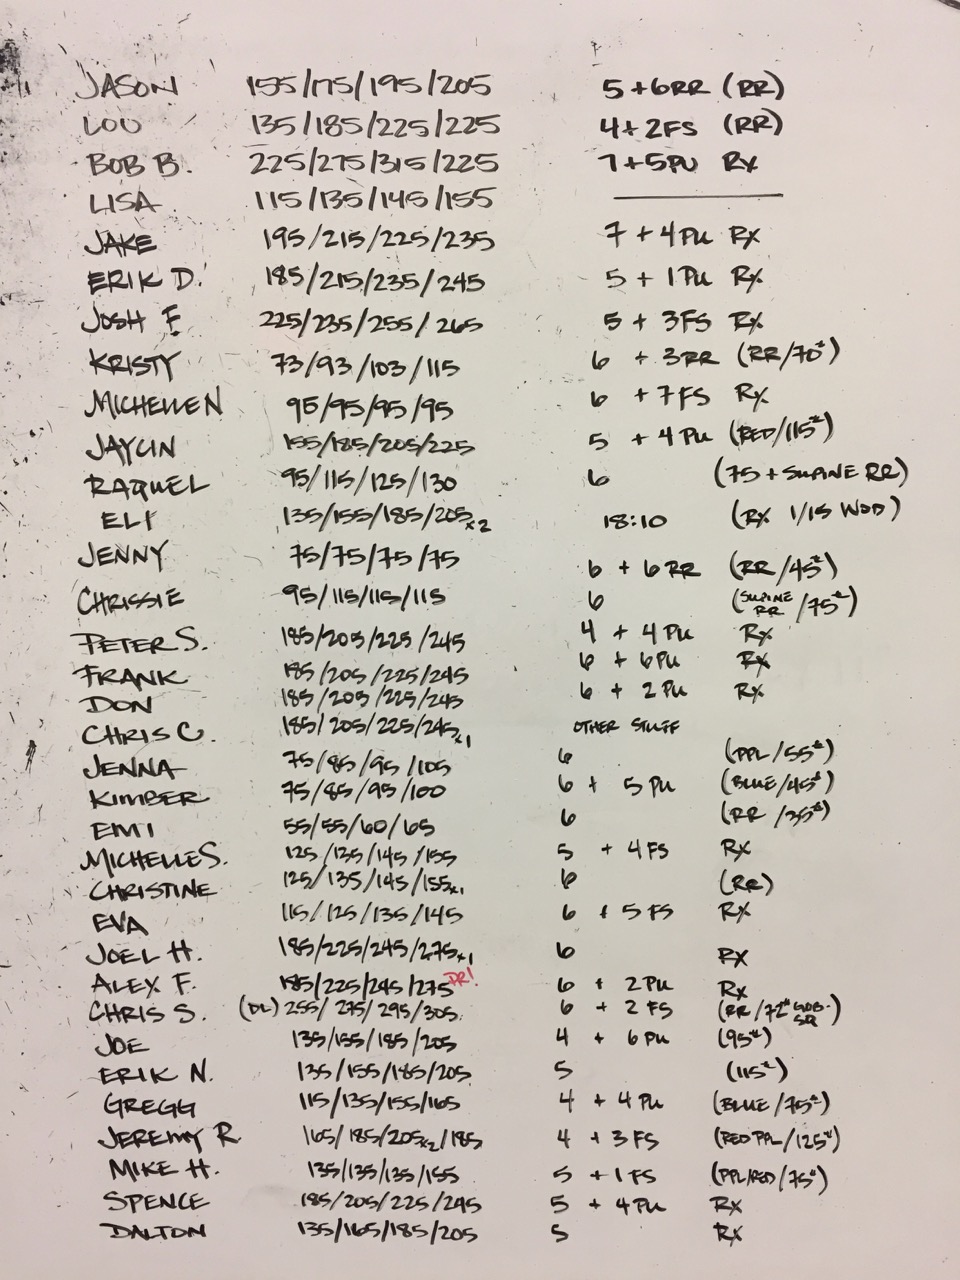 JASON 155/175/195/205 5 + 6RR (RR)
LOU 135/185/225/225 4 + 2FS (RR)
BOB B. 225/275/315/225 7 + 5PU Rx
LISA 115/135/145/155
JAKE 195/215/225/235 7 + 4PU Rx
ERIK D. 185/215/235/245 5 + 1PU Rx
JOSH F 225/235/255/265 5 + 3FS Rx
KRISTY 73/93/103/115 6 + 3RR (RR/70#)
MICHELLE N 95/95/95/95 6 + 7FS Rx
JAYLIN 155/185/205/225 5 + 4PU (RED/115#)
RAQUEL 95/115/125/130 6 (75 + SUPINE RR)
ELI 135/155/185/205x2 18:10 (RX 1/15 WOD)
JENNY 75/75/75/75 6 + 6RR (RR/45#)
CHRISSIE 95/115/115/115 6 (SUPINE RR/75#)
PETER S. 185/205/225/245 4 + 4PU Rx
FRANK 185/205/225/245 6 + 6PU Rx
DON 185/205/225/245 6 + 2PU Rx
CHRIS C. 185/205/225/245x1 OTHER STUFF
JENNA 75/85/95/105 6 (PPL/55#)
KIMBER 75/85/95/100 6 + 5PU (BLUE/45#)
EMI 55/55/60/65 6 (RR/35#)
MICHELLE S. 125/135/145/155 5 + 4FS Rx
CHRISTINE 125/135/145/155x1 6 (RR)
EVA 115/125/135/145 6 + 5FS Rx
JOEL H. 185/225/245/275x1 6 Rx
ALEX F. 185/225/245/275 PR! 6 + 2PU Rx
CHRIS S. (DL) 255/275/295/305 6 + 2FS (RR/72# GOB. SQ)
JOE 135/155/185/205 4 + 6PU (95#)
ERIK N. 135/155/185/205 5 (115#)
GREGG 115/135/155/165 4 + 4PU (BLUE/75#)
JEREMY R 165/185/205x2/185 4 + 3FS (RED PPL/125#)
MIKE H. 135/135/135/155 5 + 1FS (PPL/RED/75#)
SPENCE 185/205/225/245 5 + 4PU Rx
DALTON 135/165/185/205 5 Rx